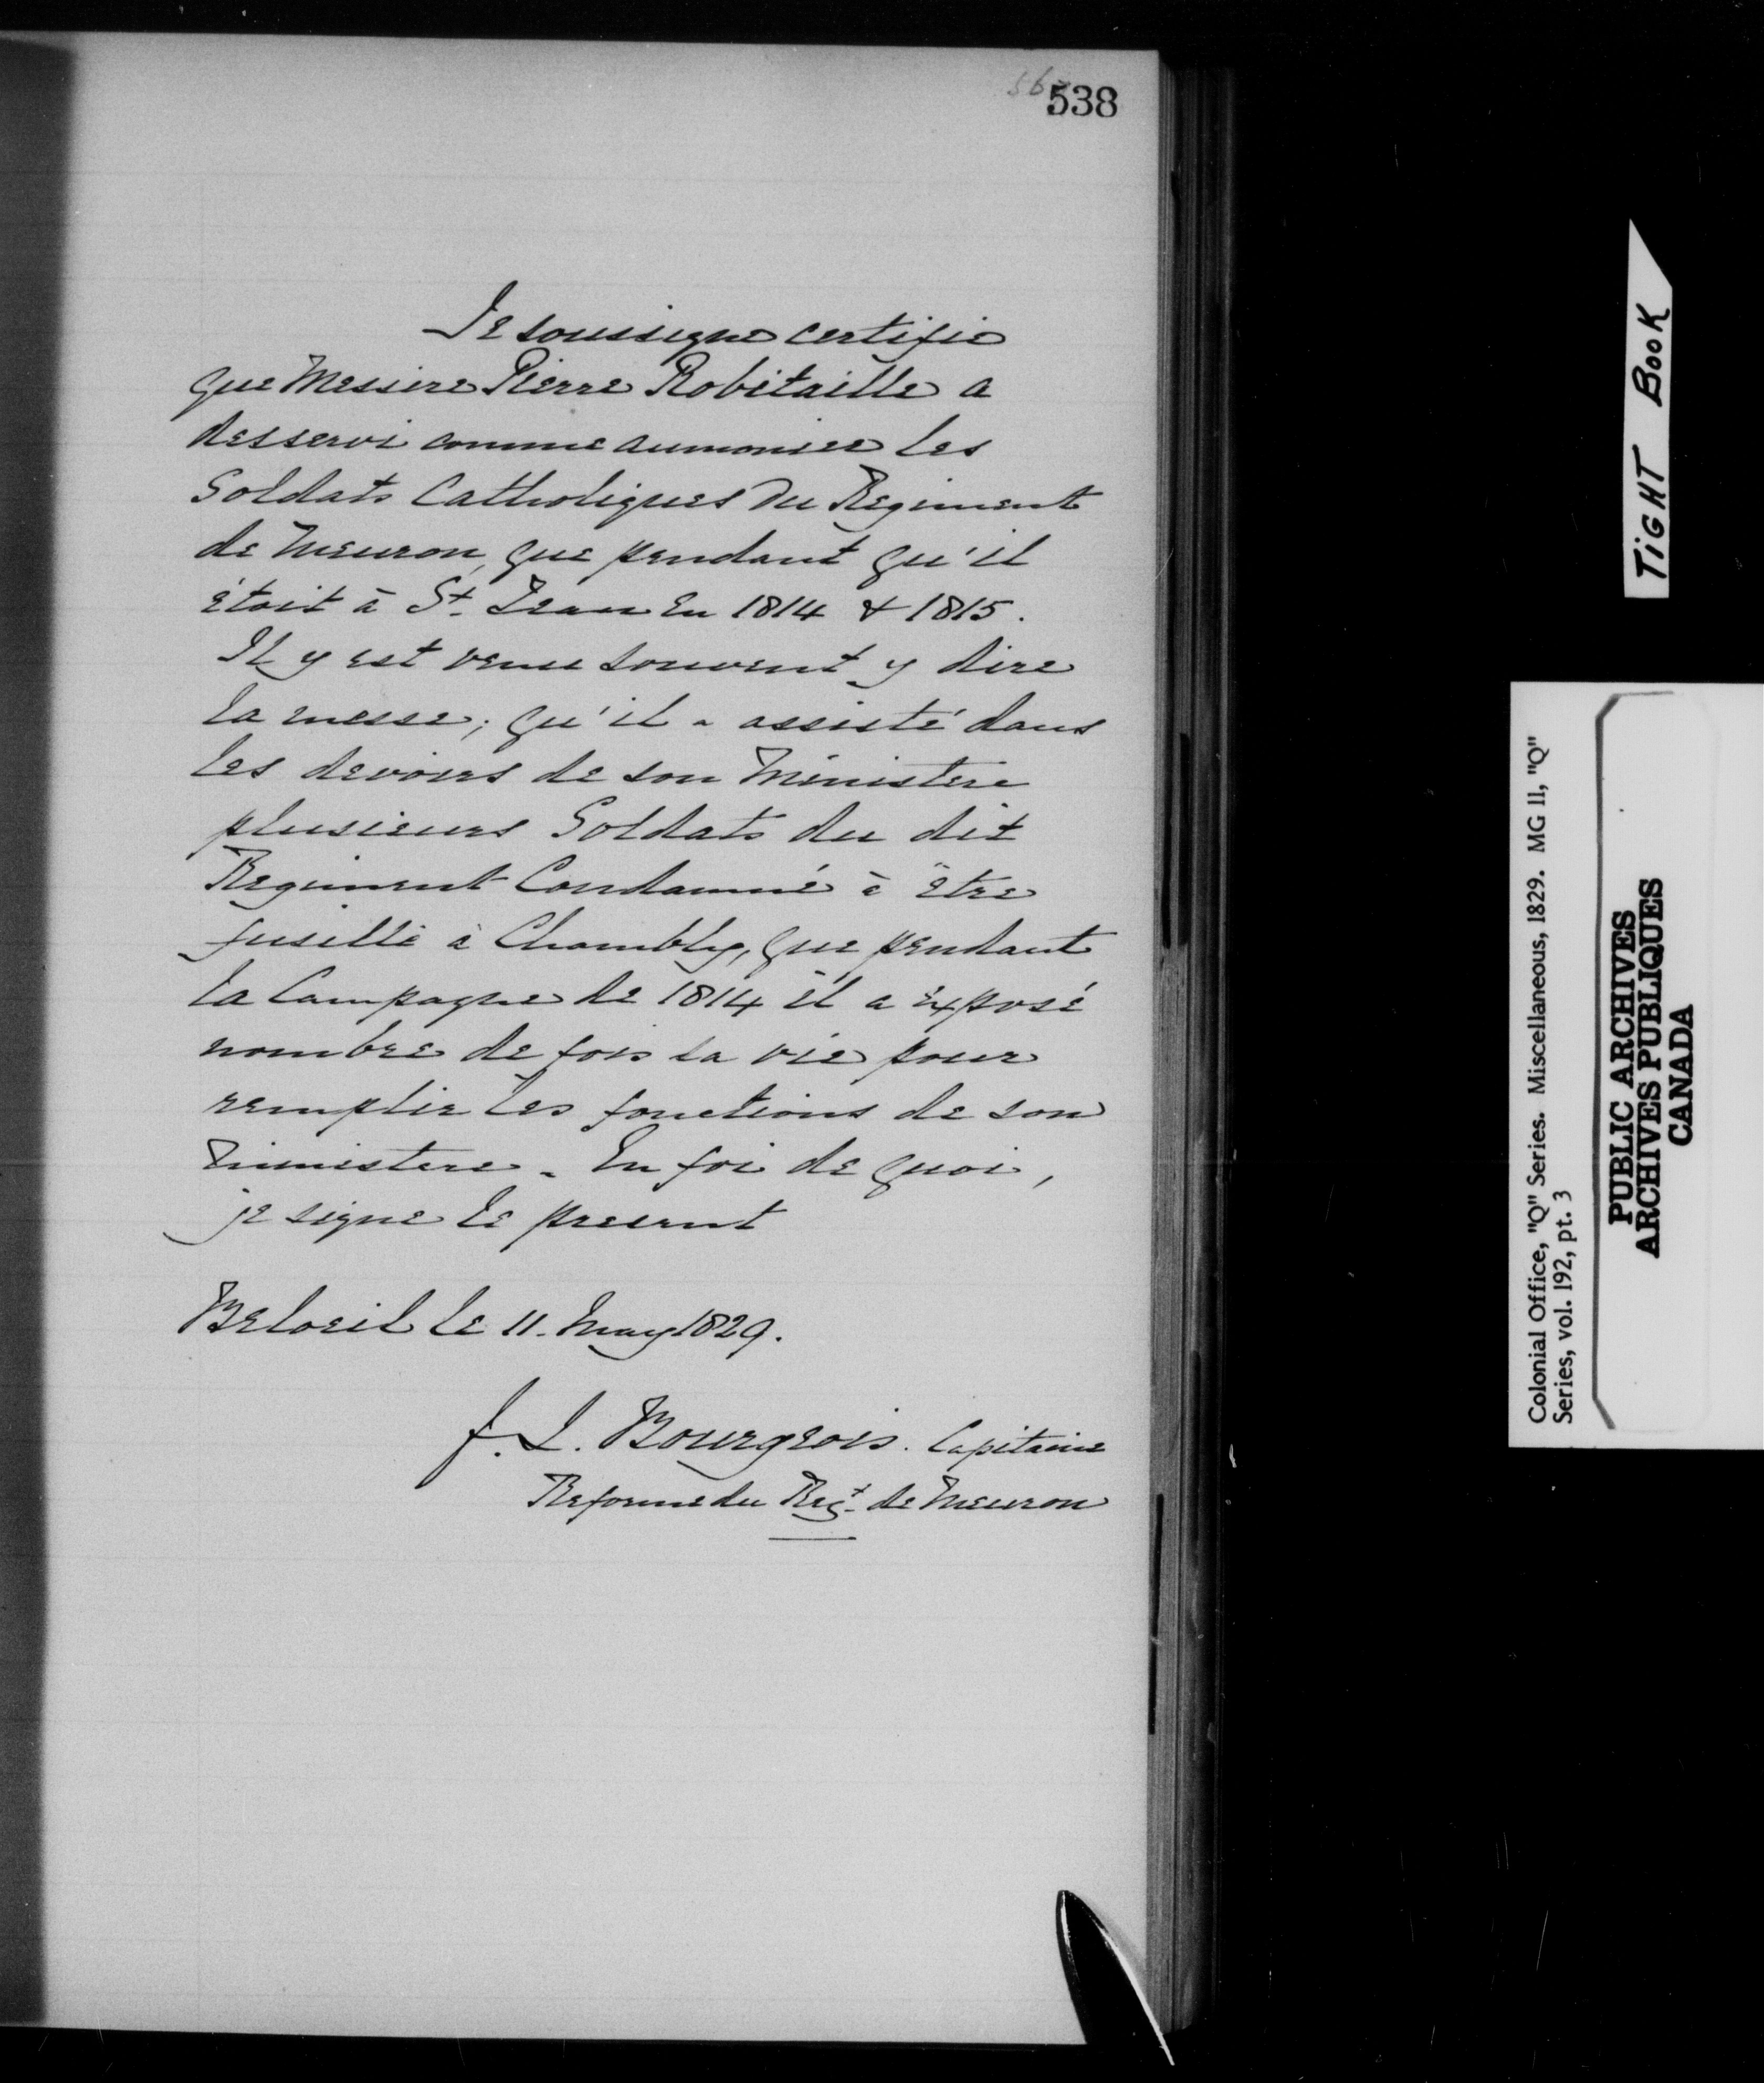 538
Je soussigne certifie
que Messire Pierre Robitaille a
desservi comme aumonier les
Soldats Catholiques du Regiment
de Meuron, que pendant qu'il
étoit à St. Jean en 1814 & 1815.
Il y est venu souvent y dire
la messe; qu'il a assisté dans
les devoirs de son Ministere
plusieurs Soldats du dit
Regiment Condamné à être
fusillé à Chambly, que pendant
la Campagne de 1814 il a exposé
nombre de fois sa vie pour
remplir les fonctions de son
Ministere. En foi de quoi,
je signe le present
Beloeil le 11. May 1829.
J. L. Bourgeois. Capitaine
Reforme du Regt. de Meuron
TIGHT BOOK
Colonial Office, "Q" Series. Miscellaneous, 1829. MG 11, "Q"
Series, vol. 192, pt. 3
PUBLIC ARCHIVES
ARCHIVES PUBLIQUES
CANADA